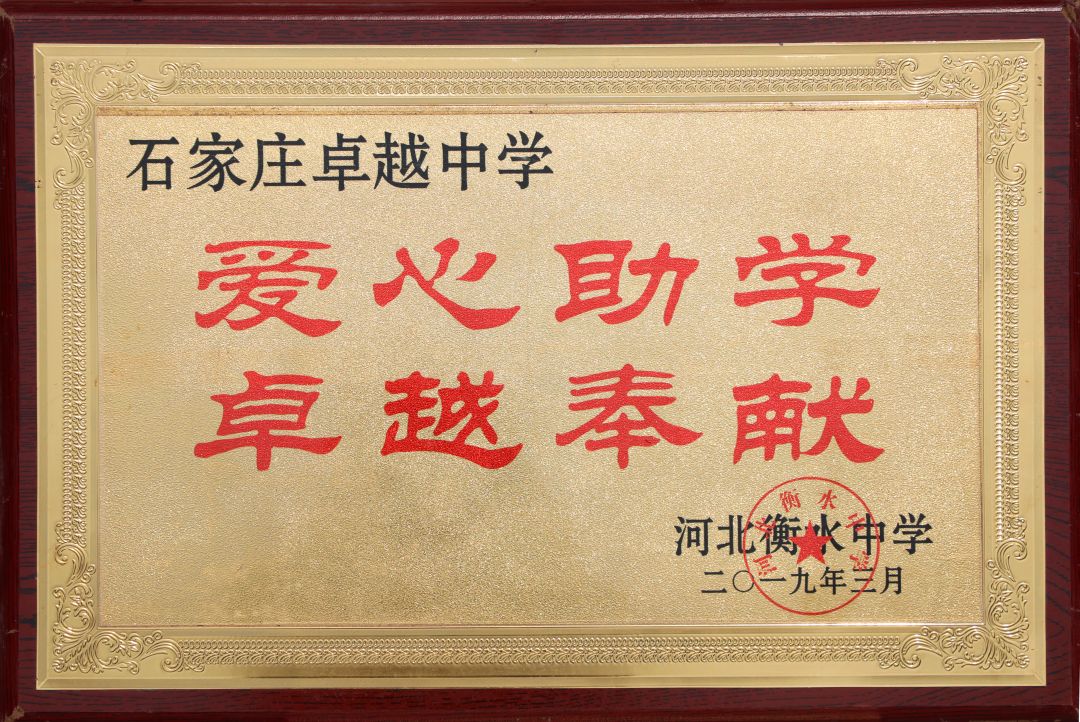 石家庄卓越中学
爱心助学
卓越奉献
河北衡水中学
二〇一九年三月
河北衡水中学